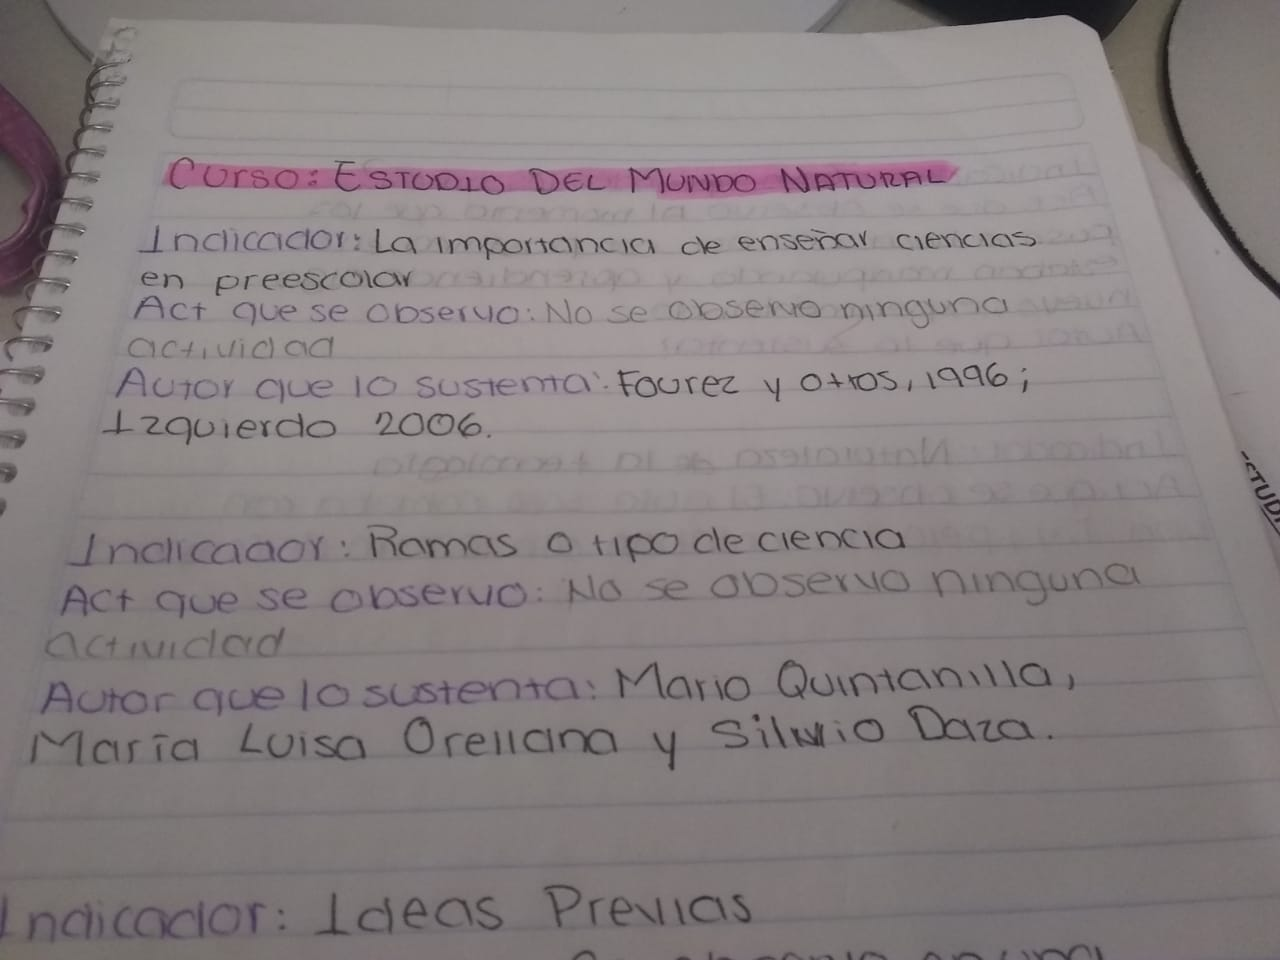 Curso: ESTUDIO DEL MUNDO NATURAL
Indicador: La importancia de enseñar ciencias
en preescolar
Act que se observo: No se observo ninguna
actividad
Autor que lo sustenta: Fourez y otros, 1996;
Izquierdo 2006.
Indicador: Ramas o tipo de ciencia
Act que se observo: No se observo ninguna
actividad
Autor que lo sustenta: Mario Quintanilla,
María Luisa Orellana y Silvio Daza.
Indicador: Ideas Previas